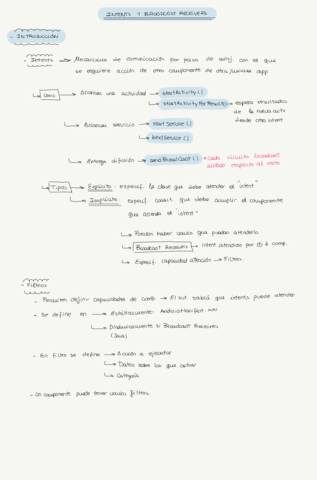 INTENTS Y BROADCAST RECEIVERS
- INTRODUCCIÓN
- Intents → Mecanismo de comunicación por paso de msj. con el que
se requiere acción de otro componente de otra/misma app
→ Usos → Arrancar una actividad → startActivity()
→ startActivityForResult() → espera resultados
de la nueva activ.
desde otro intent
→ Arrancar servicio → startService()
→ bindService()
→ Entrega difusión → sendBroadcast() →
→ Tipos → Explícito: especif. la clase que debe atender el "intent"
→ Implícito: especif. que debe cumplir el componente
que atienda el "intent"
→ Pueden haber varios que puedan atenderlo
→ Broadcast Receivers → intent atendido por 1 ó comp.
→ Especif. capacidad atención → Filtros
- Filtros
- Permiten definir capacidades de comp → El sist. sabrá que intents puede atender
- Se define en → Estáticamente: AndroidManifest.xml
→ Dinámicamente si Broadcast Receivers
(Java)
- En filtro se define → Acción a ejecutar
→ Datos sobre los que actuar
→ Categoría
- Un componente puede tener varios filtros